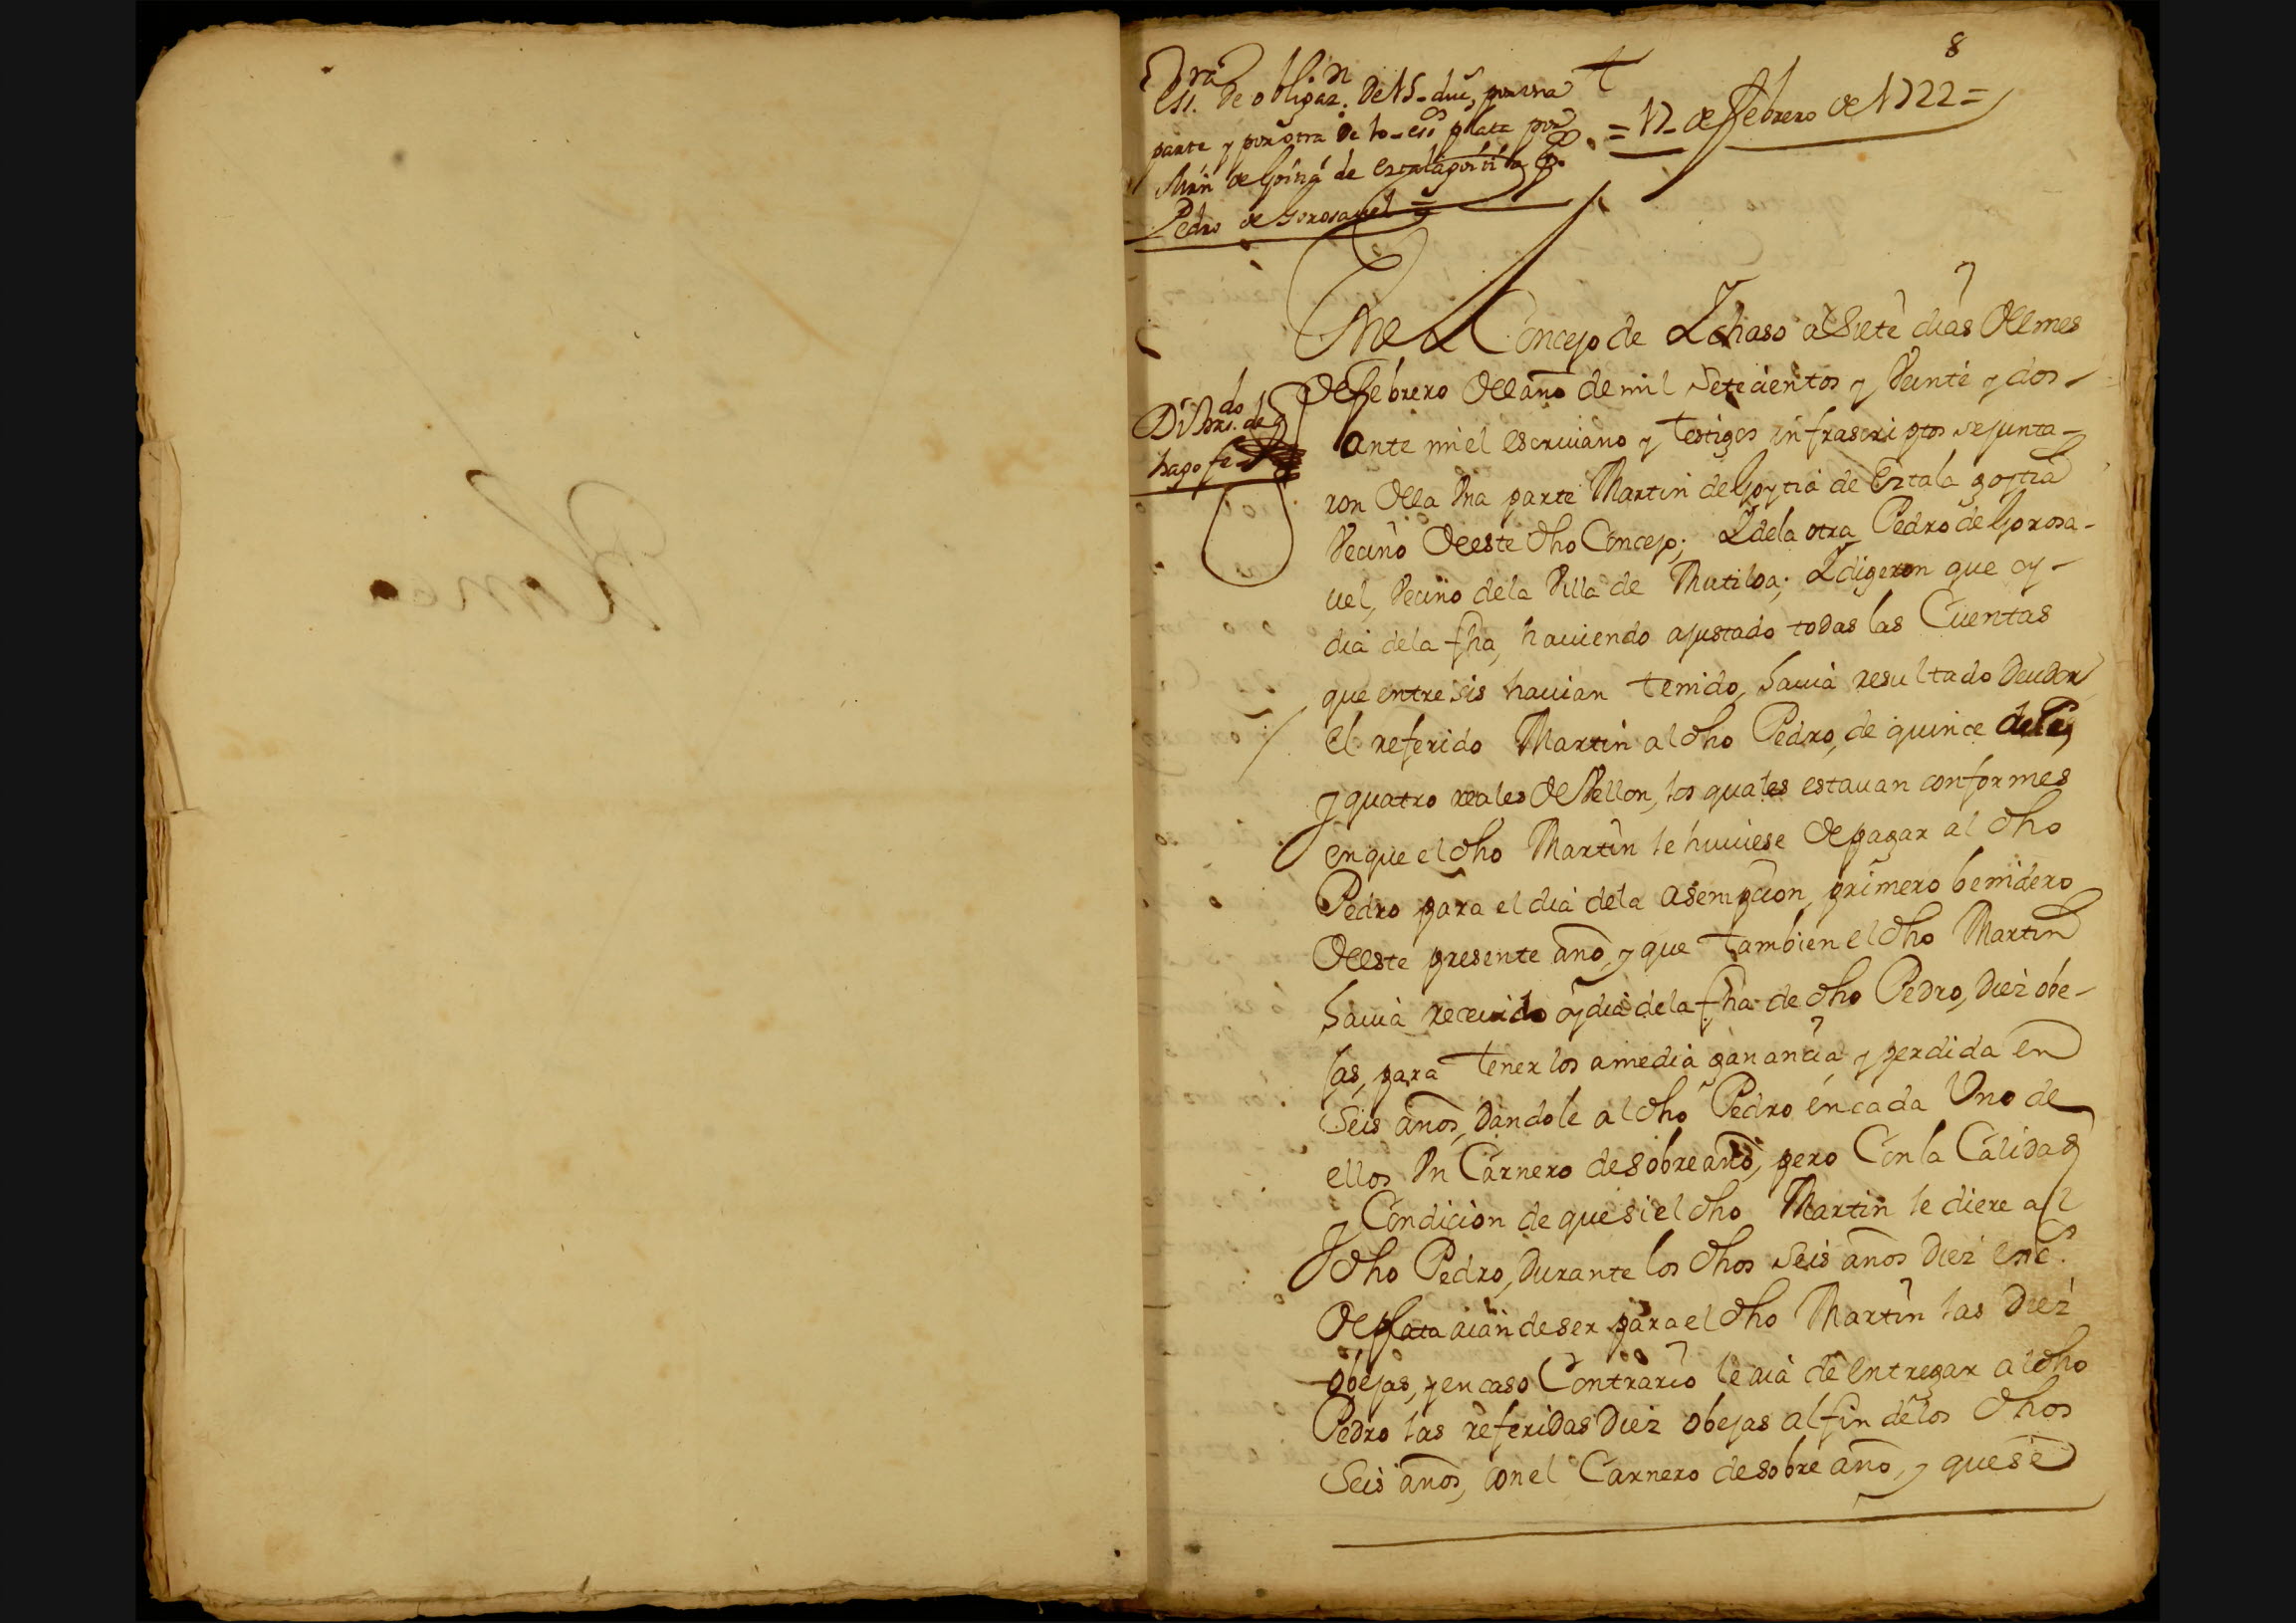 8
Essra. De obligaz.n De 15_ duc.s por una
parte y por otra De 10_ es.dos plata por
Mrn de Goitia de Eztalagoitia
Pedro de Gorosavel =
= 17_ de febrero de 1722 =
En el Concejo de Ychaso a Siete dias del mes
de febrero del año de mil setecientos y Veinte y dos
ante mi el escriuano y testigos infrascriptos se junta-
ron de la Vna parte Martin de Goytia de Eztala goytia
Vecino de este dho Concejo; Y de la otra Pedro de Gorosa-
uel, Vecino de la Villa de Mutiloa; Y digeron que oy
dia de la fha, hauiendo ajustado todas las Cuentas
que entre sis hauian tenido, hauia resultado Deudor
el referido Martin al dho Pedro, de quince
y quatro reales de Vellon, los quales estauan conformes
en que el dho Martin le huuiese de pagar al dho
Pedro para el dia de la Asempcion, primero benidero
de este presente año, y que tambien el dho Martin
hauia receuido oy dia de la fha de dho Pedro, Diez obe-
jas, para tener los a media ganancia y perdida en
Seis años, Dandole al dho Pedro en cada Uno de
ellos Vn Carnero de sobre año, pero Con la Calidad
y Condicion de que si el dho Martin le diere al
dho Pedro, Durante los dhos seis años Diez esc.s
de plata auian de ser para el dho Martin las Diez
obejas, y en caso Contrario le auia de entregar al dho
Pedro las referidas Diez obejas al fin de los dhos
Seis años, con el Carnero de sobre año, y que se
hago fe